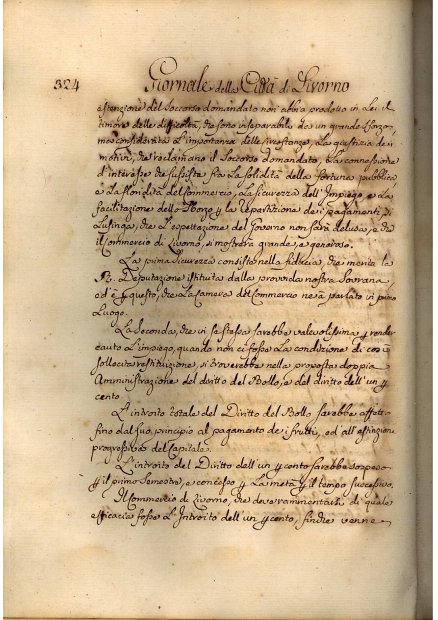 324 Giornale della Città di Livorno
estenzione del Soccorso domandato non abbia prodotto in Lei il
timore delle difficoltà, che sono inseparabili da un grande sforzo,
ma considerata L'importanza delle circostanze, La giustizia dei
motivi, che reclamano il Soccorso domandato, La connessione
d'interesse che sussiste fra La Solidità della fortuna pubblica
e La floridità del Commercio, La Sicurezza dell'Impiego, e La
facilitazione dello sforzo y La repartizione dei pagamenti, Si
Lusinga, che L'espettazione del Governo non sarà delusa, e che
il Commercio di Livorno, si mostrerà grande, e generoso.
La prima Sicurezza consiste nella fiducia, che merita La
R. Deputazione istituita dalla provvida nostra Sovrana,
ed è y questo, che La Camera del Commercio ne ha parlato in primo
Luogo.
La Seconda, che in se stessa sarebbe valevolissima y render
cauto L'impiego, quando non ci fosse La condizione di così
sollecita restituzione, si troverebbe nella proposta doppia
Amministrazione del diritto del Bollo, e del diritto dell'un y
cento.
L'introito totale del Diritto del Bollo sarebbe affetto
fino dal suo principio al pagamento dei frutti, ed all'estinzione
progressiva del Capitale.
L'introito del Diritto dell'un y cento sarebbe sospeso
y il primo Semestre, e concesso y La metà y il tempo successivo.
Il Commercio di Livorno, che deve rammentarsi di quale
efficacia fosse L'Introito dell'un y cento, finchè venne